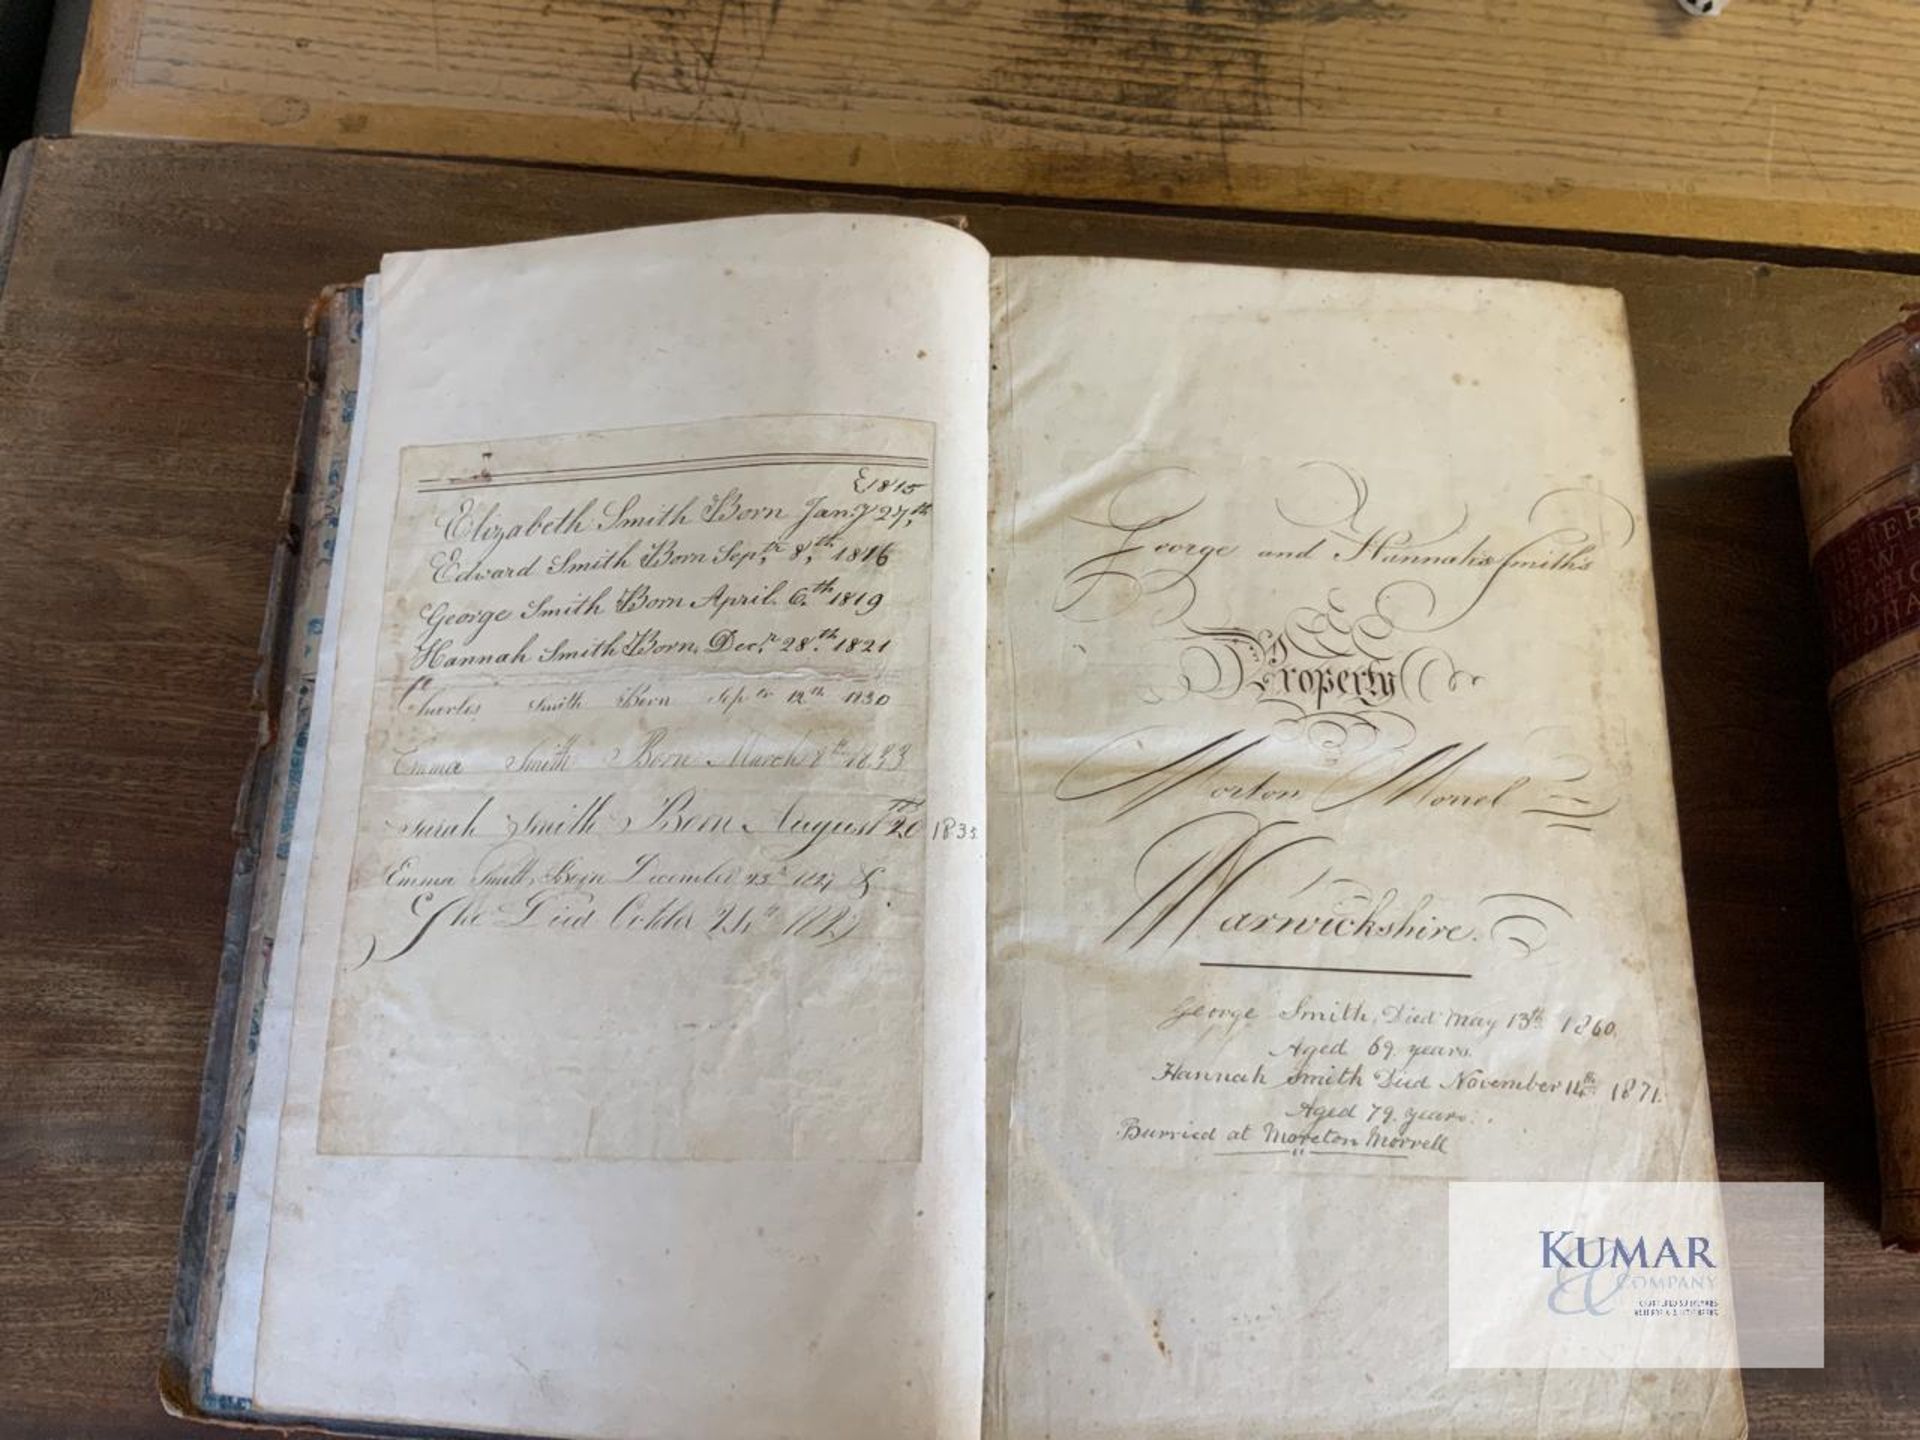 1815
Elizabeth Smith Born Jany 27,th
Edward Smith Born Sept,r 8,th 1816
George Smith Born April 6,th 1819
Hannah Smith Born Decr 28,th 1821
Charles Smith Born Sepbr 12th 1830
Emma Smith Born March 8th 1833
Sarah Smith Born August 20 1835
Emma Smith Born December &
She Died
George and Hannah Smith's
Property
Morton Morrel
Warwickshire.
George Smith, Died May 13th 1860.
Aged 69. years.
Hannah Smith Died November 14th 1871.
Aged 79. years.
Burried at Moreton Morrell
KUMAR
& COMPANY